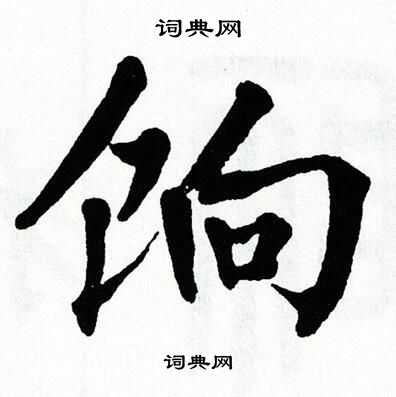 词典网
饷
词典网